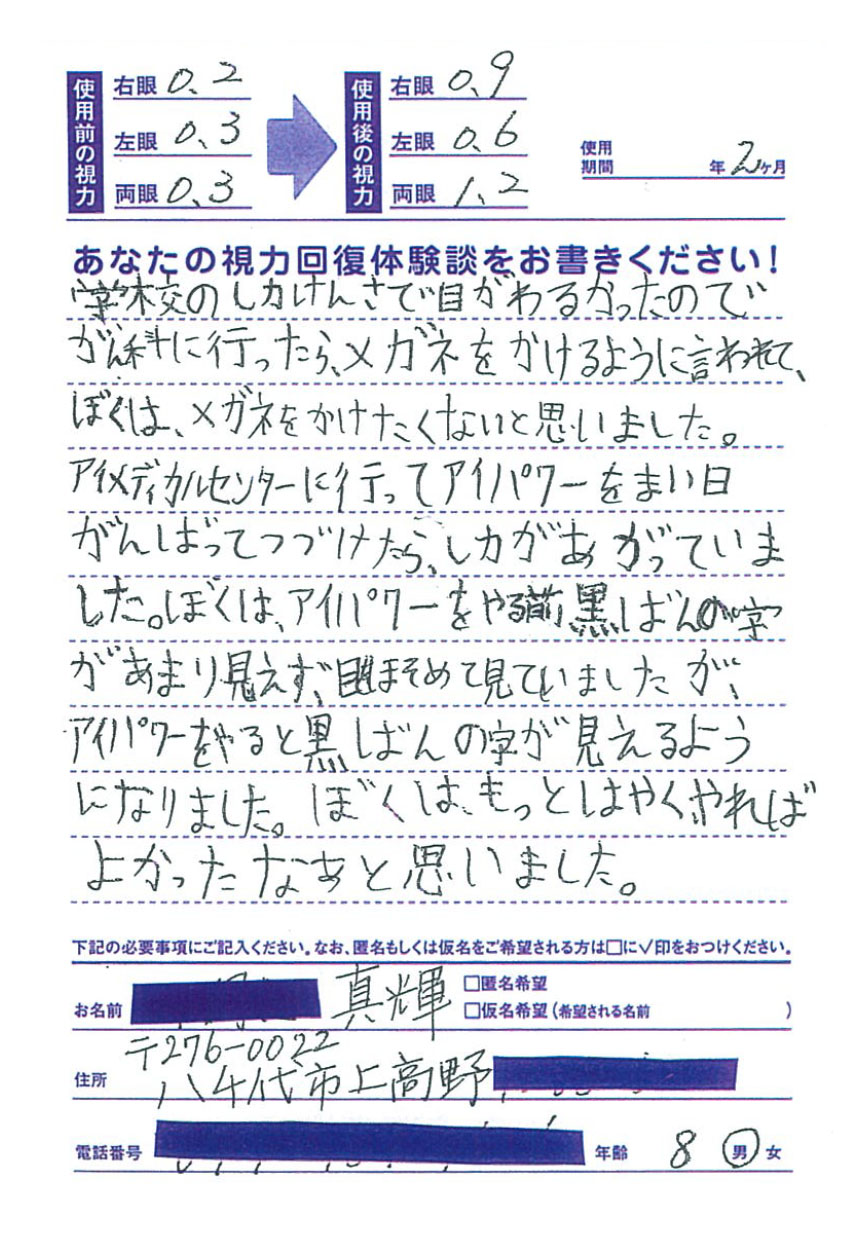 使用前の視力
右眼 0.2
左眼 0.3
両眼 0.3
使用後の視力
右眼 0.9
左眼 0.6
両眼 1.2
使用期間 年 2ヶ月
あなたの視力回復体験談をお書きください!
学校のしカけんさで目がわるかったので
がん科に行ったら、メガネをかけるように言われて、
ぼくは、メガネをかけたくないと思いました。
アイメディカルセンターに行ってアイパワーをまい日
がんばってつづけたら、しカがあがっていま
した。ぼくは、アイパワーをやる前黒しばんの字
があまり見えず、目ほそめて見ていましたが、
アイパワーをやると黒しばんの字が見えるよう
になりました。ぼくは、もっとはやく、やれば
よかったなあと思いました。
下記の必要事項にご記入ください。なお、匿名もしくは仮名をご希望される方は□に✓印をおつけください。
お名前 真輝 □匿名希望
□仮名希望(希望される名前 )
〒276-0022
住所 八千代市上高野
電話番号 年齢 8 男 女